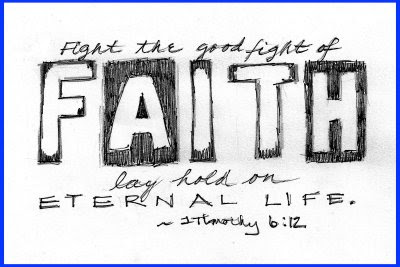 Fight the good fight of
FAITH
lay hold on
ETERNAL LIFE.
~ 1 Timothy 6:12